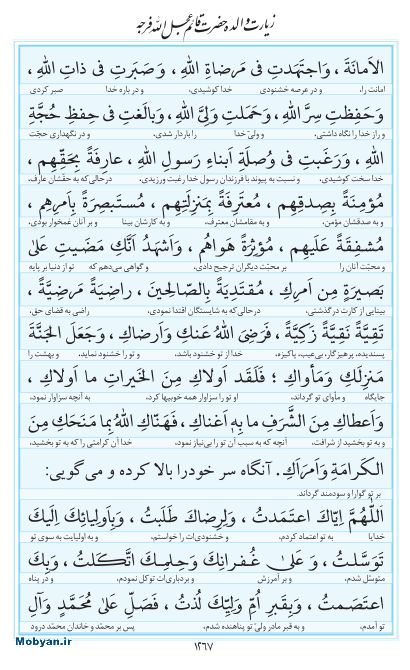 زیارت والده حضرت قائم عجل الله فرجه
الاَمانَةَ ، وَاجتَهَدتِ فی مَرضاةِ اللهِ ، وَصَبَرتِ فی ذاتِ اللهِ ،
امانت را، و در عرصه خشنودی خدا کوشیدی، و در باره خدا صبر کردی
وَحَفِظتِ سِرَّ اللهِ ، وَحَمَلتِ وَلِیَّ اللهِ ، وَبالَغتِ فی حِفظِ حُجَّةِ
و راز خدا را نگاه داشتی، و ولیّ خدا را باردار شدی، و در نگهداری حجّت
اللهِ ، وَرَغِبتِ فی وُصلَةِ اَبناءِ رَسولِ اللهِ ، عارِفَةً بِحَقِّهِم ،
خدا سخت کوشیدی، و نسبت به پیوند با فرزندان رسول خدا رغبت ورزیدی، درحالی‌که به حقّشان عارف،
مُؤمِنَةً بِصِدقِهِم ، مُعتَرِفَةً بِمَنزِلَتِهِم ، مُستَبصِرَةً بِاَمرِهِم ،
و به صدقشان مؤمن، و به مقامشان معترف، و به کارشان بینا و بر آنان غمخوار بودی،
مُشفِقَةً عَلَیهِم ، مُؤثِرَةً هَواهُم ، وَاَشهَدُ اَنَّکِ مَضَیتِ عَلیٰ
و محبّت آنان را بر محبّت دیگران ترجیح دادی، و گواهی می‌دهم که تو از دنیا بر پایه
بَصیرَةٍ مِن اَمرِکِ ، مُقتَدِیَةً بِالصّالِحینَ ، راضِیَةً مَرضِیَّةً ،
بینایی از کارت در گذشتی، درحالی‌که به شایستگان اقتدا نمودی، راضی به قضای حق،
تَقِیَّةً نَقِیَّةً زَکِیَّةً ، فَرَضِیَ اللهُ عَنکِ وَاَرضاکِ ، وَجَعَلَ الجَنَّةَ
پسندیده، پرهیزگار، بی‌عیب، پاکیزه، خدا از تو خشنود باشد، و تو را خشنود نماید، و بهشت را
مَنزِلَکِ وَمَأواکِ ؛ فَلَقَد اَولاکِ مِنَ الخَیراتِ ما اَولاکِ ،
جایگاه و مأوای تو گرداند، او تو را سزاوار همه خوبیها کرد، به آنچه سزاوار نمود،
وَاَعطاکِ مِنَ الشَّرَفِ ما بِهٖ اَغناکِ ، فَهَنّاکِ اللهُ بِما مَنَحَکِ مِنَ
و به تو بخشید از شرافت، آنچه که به سبب آن تو را بی‌نیاز نمود، خدا آن کرامتی را که به تو بخشید،
الکَرامَةِ وَاَمرَاَکِ. آنگاه سر خودرا بالا کرده و می‌گویی:
بر تو گوارا و سودمند گرداند.
اَللّٰهُمَّ اِیّاکَ اعتَمَدتُ ، وَلِرِضاکَ طَلَبتُ ، وَبِاَولِیائِکَ اِلَیکَ
خدایا به تو اعتماد کردم، و خشنودی‌ات را خواستم، و به اولیایت به سوی تو
تَوَسَّلتُ ، وَ عَلیٰ غُفرانِکَ وَحِلمِکَ اتَّکَلتُ ، وَبِکَ
متوسّل شدم، و بر آمرزش و بردباری‌ات توکل نمودم، و در پناه
اعتَصَمتُ ، وَبِقَبرِ اُمِّ وَلِیِّکَ لُذتُ ، فَصَلِّ عَلیٰ مُحَمَّدٍ وَآلِ
تو آمدم، و به قبر مادر ولیّ تو پناهنده شدم، پس بر محمّد و خاندان محمّد درود
۱۲۶۷
Mobyan.ir